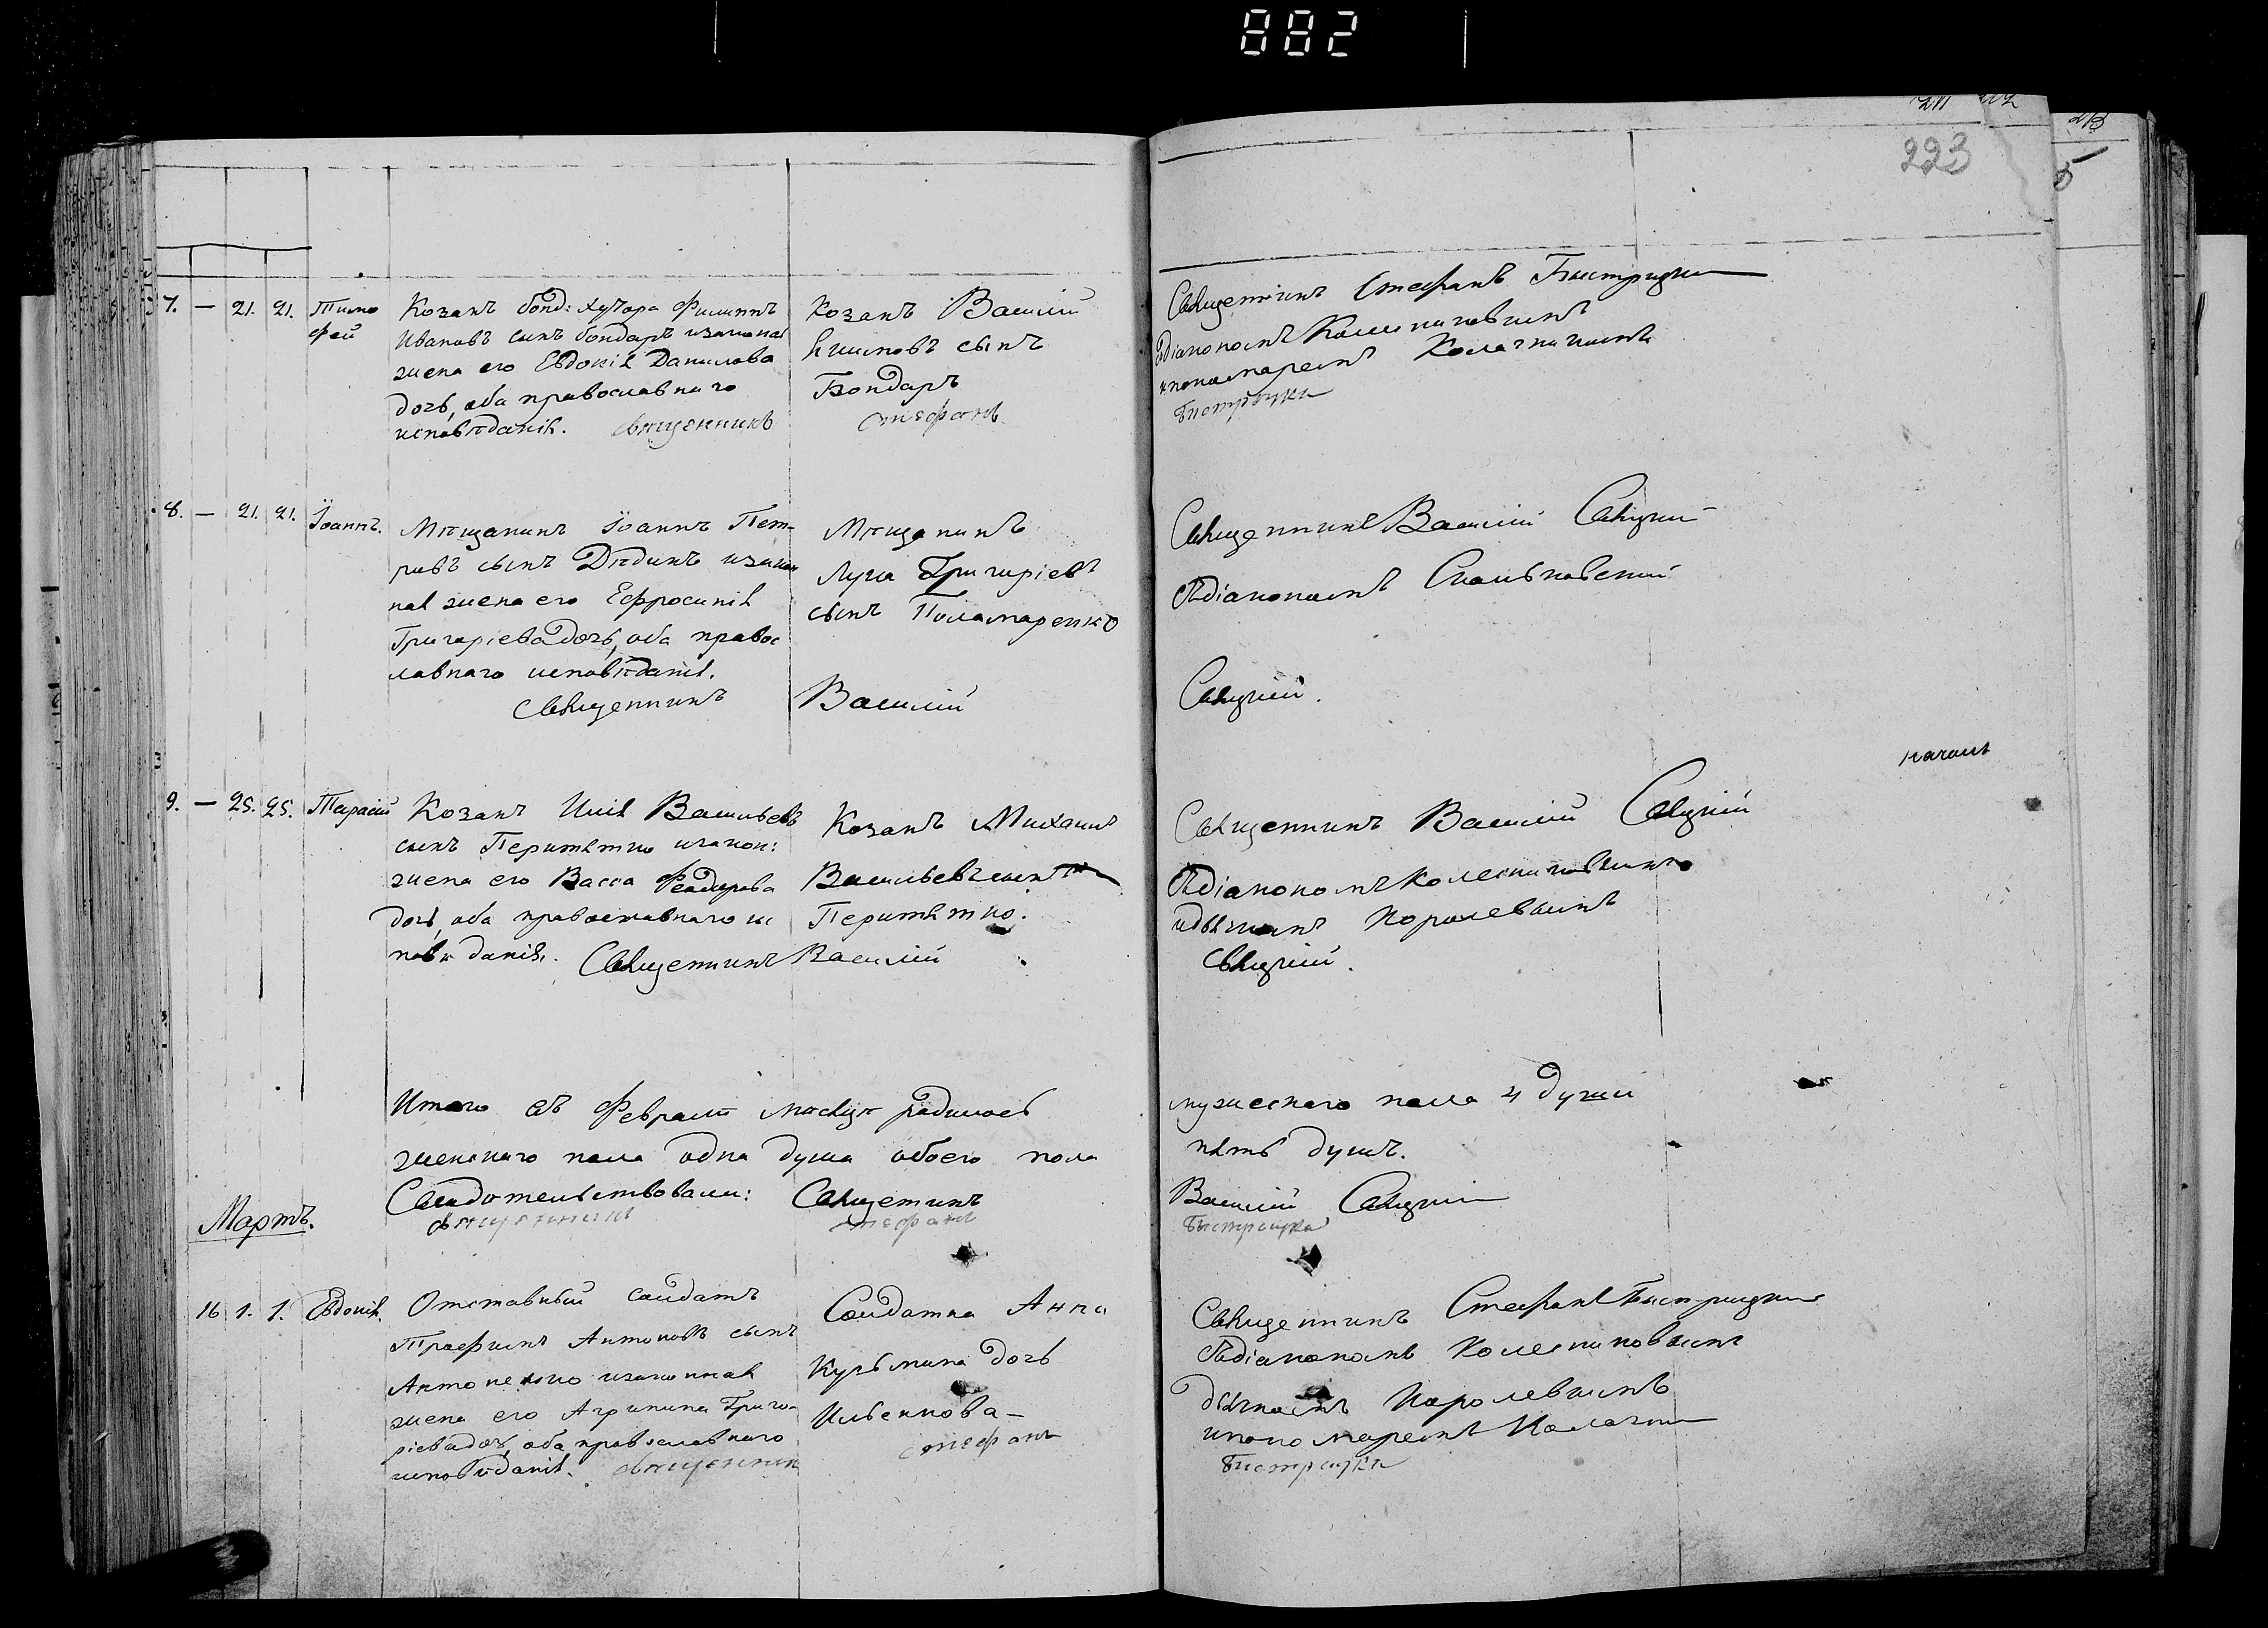 882
211 212
213
223
5
7. — 21. 21. Тимо
фей
Козакъ бонд: хутора Филиппъ
Ивановъ сынъ бондарь изаконая
жена его Евдокія Данилова
дочь, оба православнаго
исповѣданія. Священникъ
Козакъ Василій
Климовъ сынъ
Бондарь
Стефанъ
Священникъ Стефанъ Быстрицкій
съ діакономъ Колесниковымъ
и пономаремъ
Быстрицкій
8. — 21. 21. Іоаннъ.
Мѣщанинъ Іоаннъ Пет-
ровъ сынъ Дѣдикъ изакон
ная жена его Ефросинія
Григоріева дочь, оба правос
лавнаго исповѣданія.
Священникъ
Мѣщанинъ
Лука Григоріевъ
сынъ Поламаренко
Василій
Священникъ Василій Савицкій
съ діакономъ
Савицкій.
9. — 25. 25. Тарасій
Козакъ Илія Васильевъ
сынъ Перитятко изакон:
жена его Васса Феодорова
дочь, оба православнаго ис
повѣданія. Священникъ
Козакъ Михаилъ
Васильевъ сынъ
Перитятко.
Василій
Священникъ Василій Савицкій
съ діакономъ Колесниковымъ
и дьячкомъ Королевымъ
Савицкій.
Итого въ Февралѣ мѣсяцѣ родилось
женскаго пола одна душа обоего пола
Свидѣтельствовали: Священникъ
священникъ Стефанъ
мужескаго пола 4 души
пять душъ.
Василій Савицкій
Быстрицкій
Мартъ.
16 1. 1. Евдокія.
Отставный солдатъ
Трофимъ Антоновъ сынъ
Антоненко изаконная
жена его Агрипина Григо-
ріева дочь, оба православнаго
исповѣданія. священникъ
Солдатка Анна
Кузьмина дочь
Ильенкова —
Стефанъ
Священникъ Стефанъ Быстрицкій
съ діакономъ Колесниковымъ
дьячкомъ Королевымъ
и пономаремъ
Быстрицкій